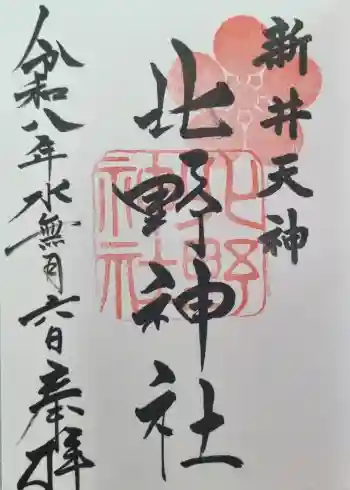 新井天神
北野神社
令和八年水無月六日奉拝
北野
神社